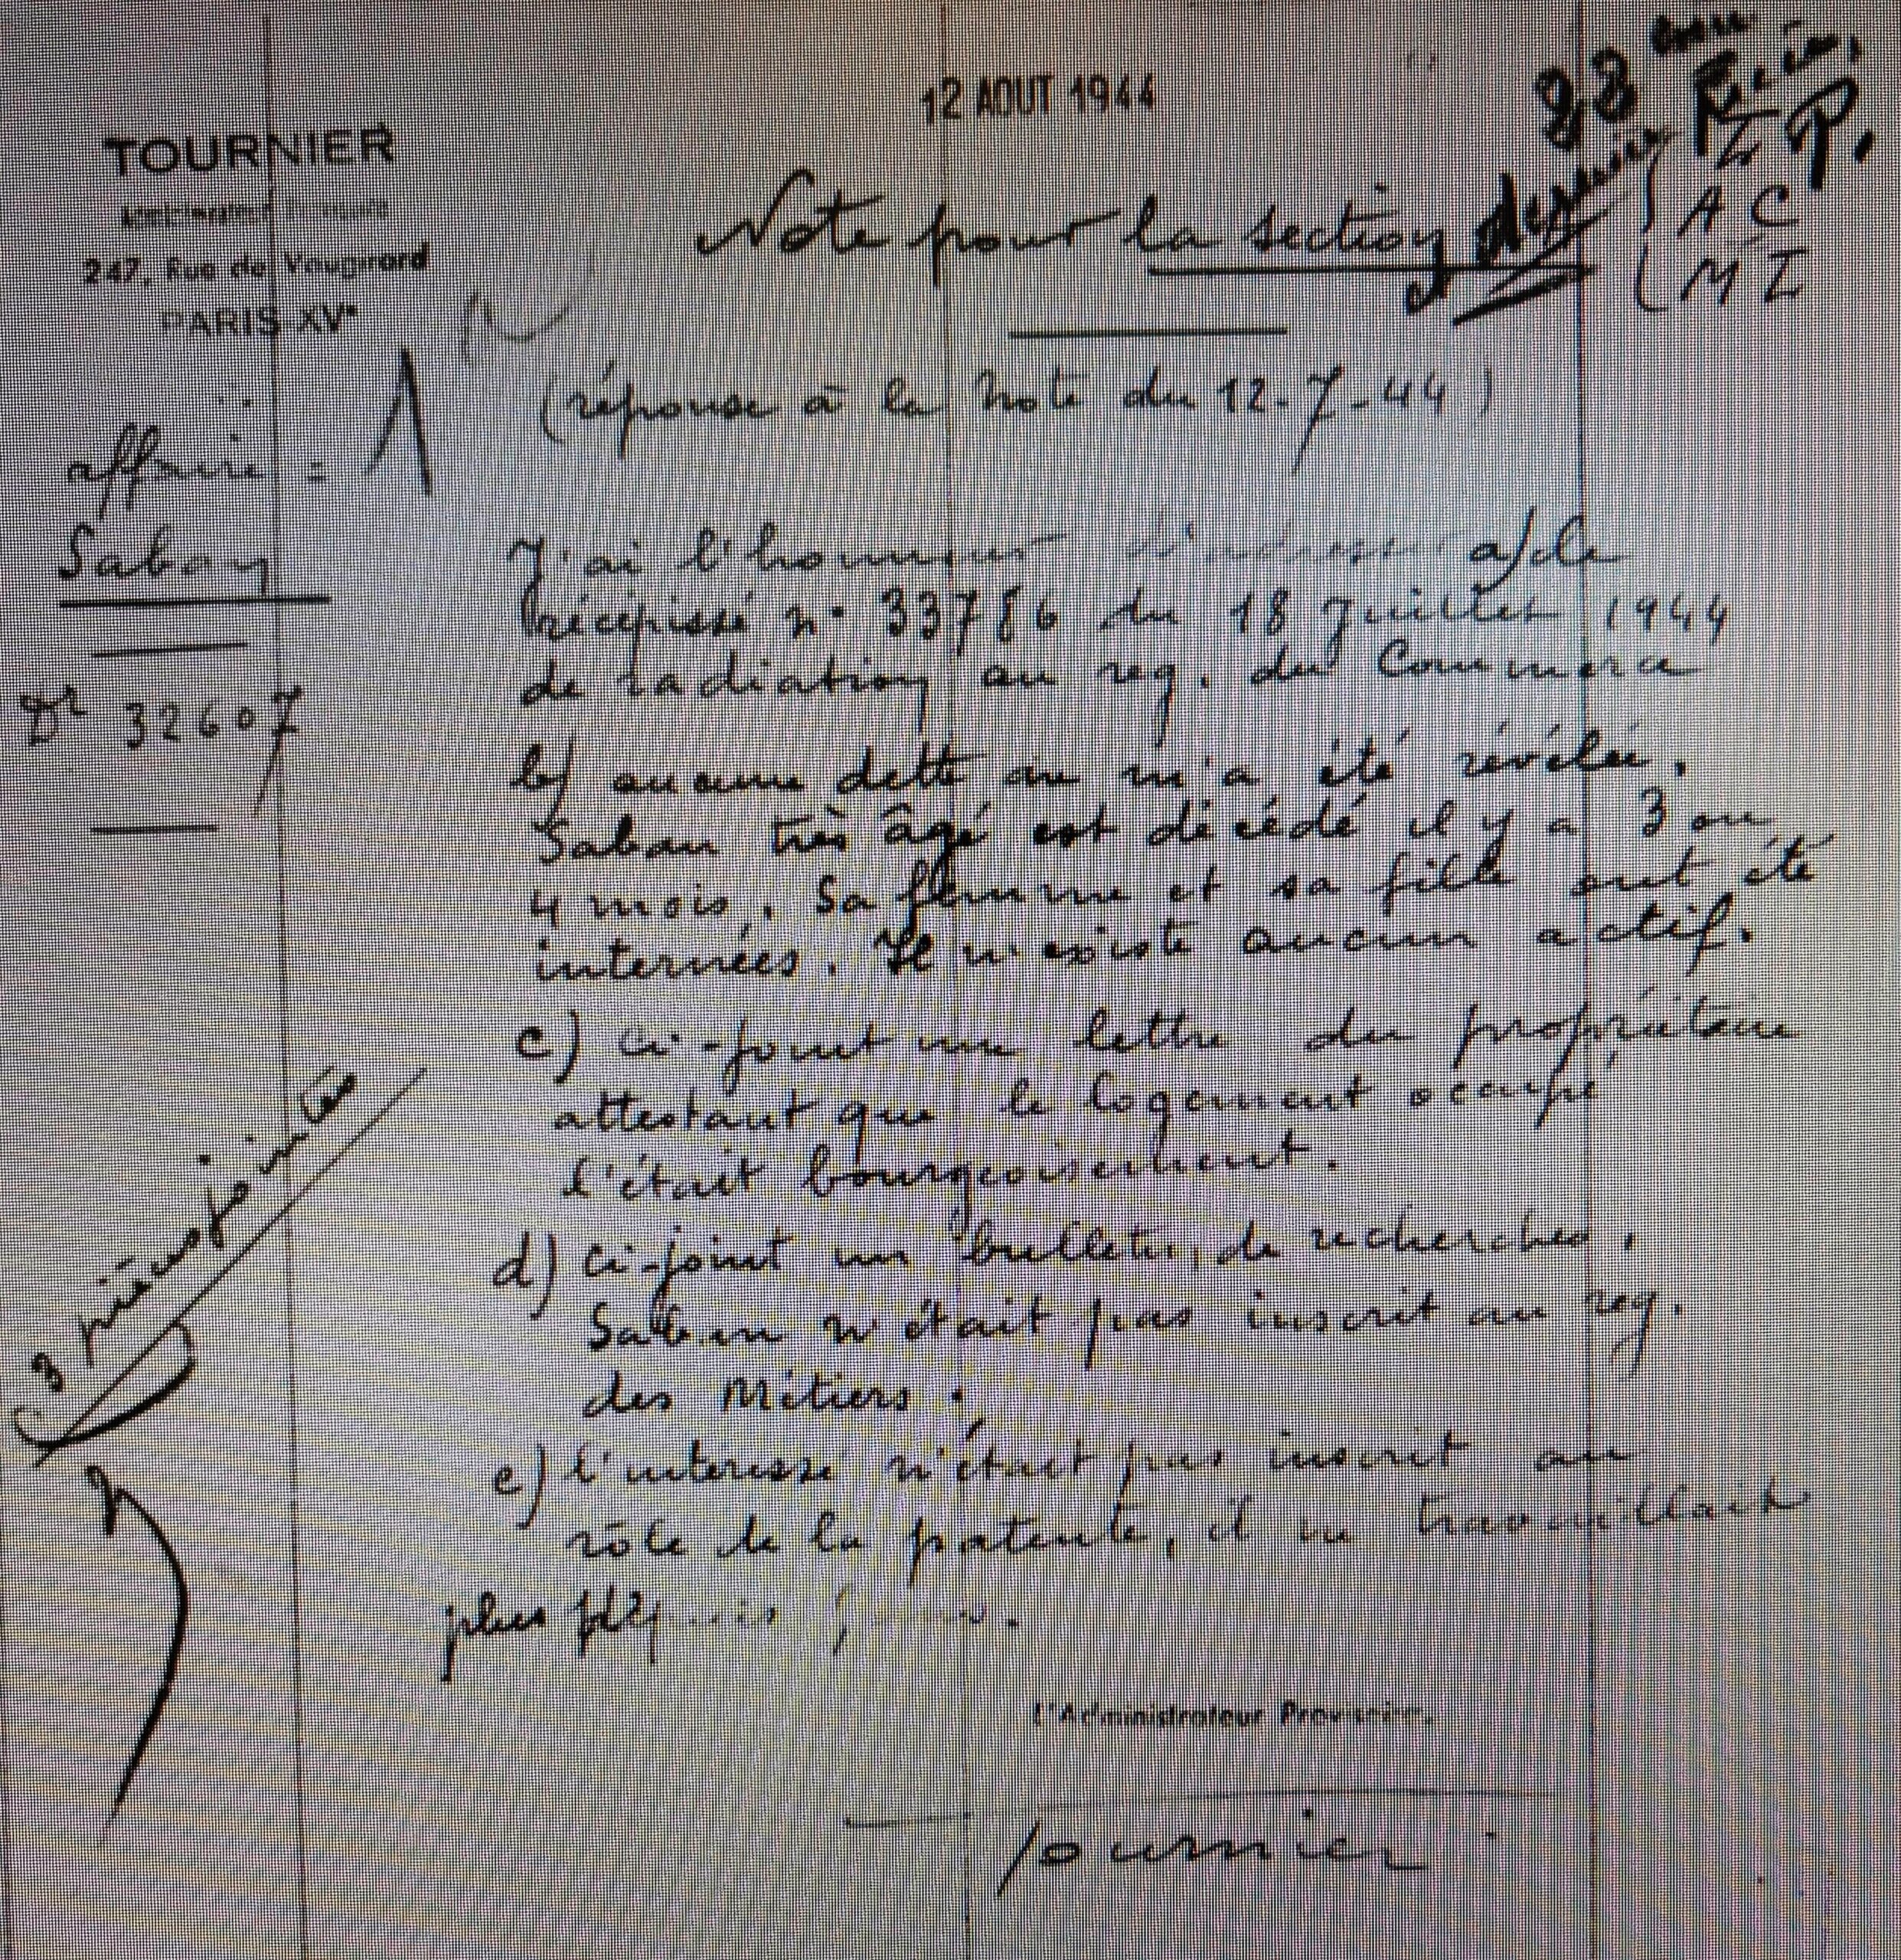 12 AOUT 1944
TOURNIER
247, Rue de Vaugirard
PARIS XVe
Note pour la section
A C
M I
(réponse à la Note du 12-7-44)
affaire =
Saban
Dr 32607
J'ai l'honneur a/ le
récépissé n° 33786 du 18 Juillet 1944
de radiation au reg. du Commerce
b/ aucune dette ne m'a été révélée.
Saban très âgé est décédé il y a 3 ou
4 mois. Sa femme et sa fille ont été
internées. Il n'existe aucun actif.
c) ci-joint une lettre du propriétaire
attestant que le logement occupé
l'était bourgeoisement.
d) ci-joint un bulletin de recherches,
Saban n'était pas inscrit au reg.
des Métiers.
e) l'intéressé n'était pas inscrit au
rôle de la patente, il ne travaillait
plus
3 pièces jointes
l'Administrateur Provisoire.
Tournier